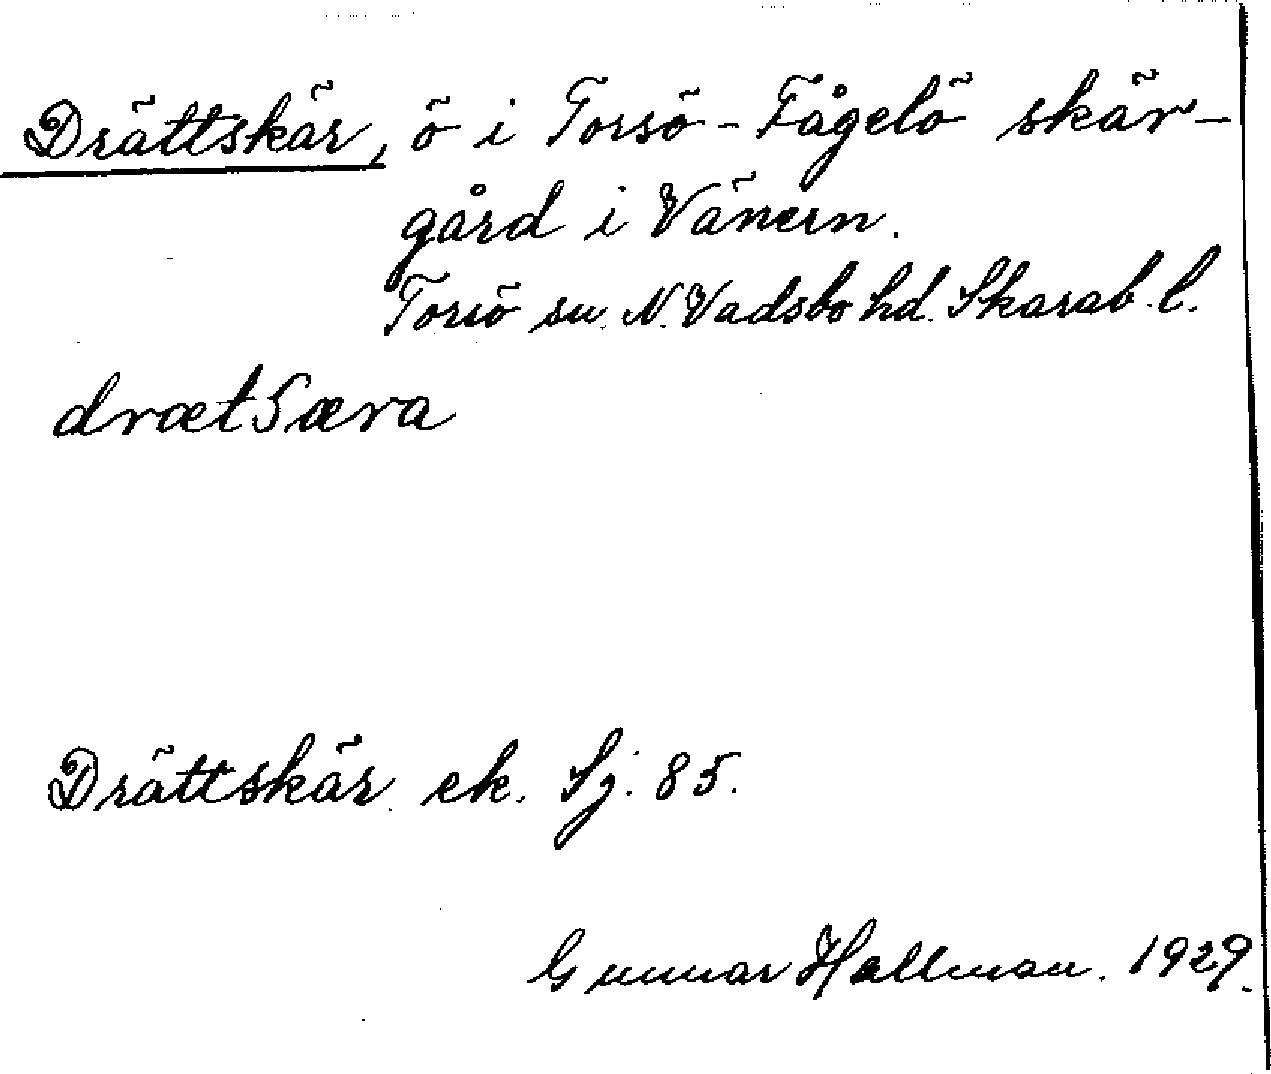 Drättskär, ö i Torsö-Fågelö skär-
gård i Vänern.
Torsö sn. N. Vadsbo hd. Skarab. l.
drætSæra
Drättskär ek. Sj. 85.
Gunnar Hallman. 1929.